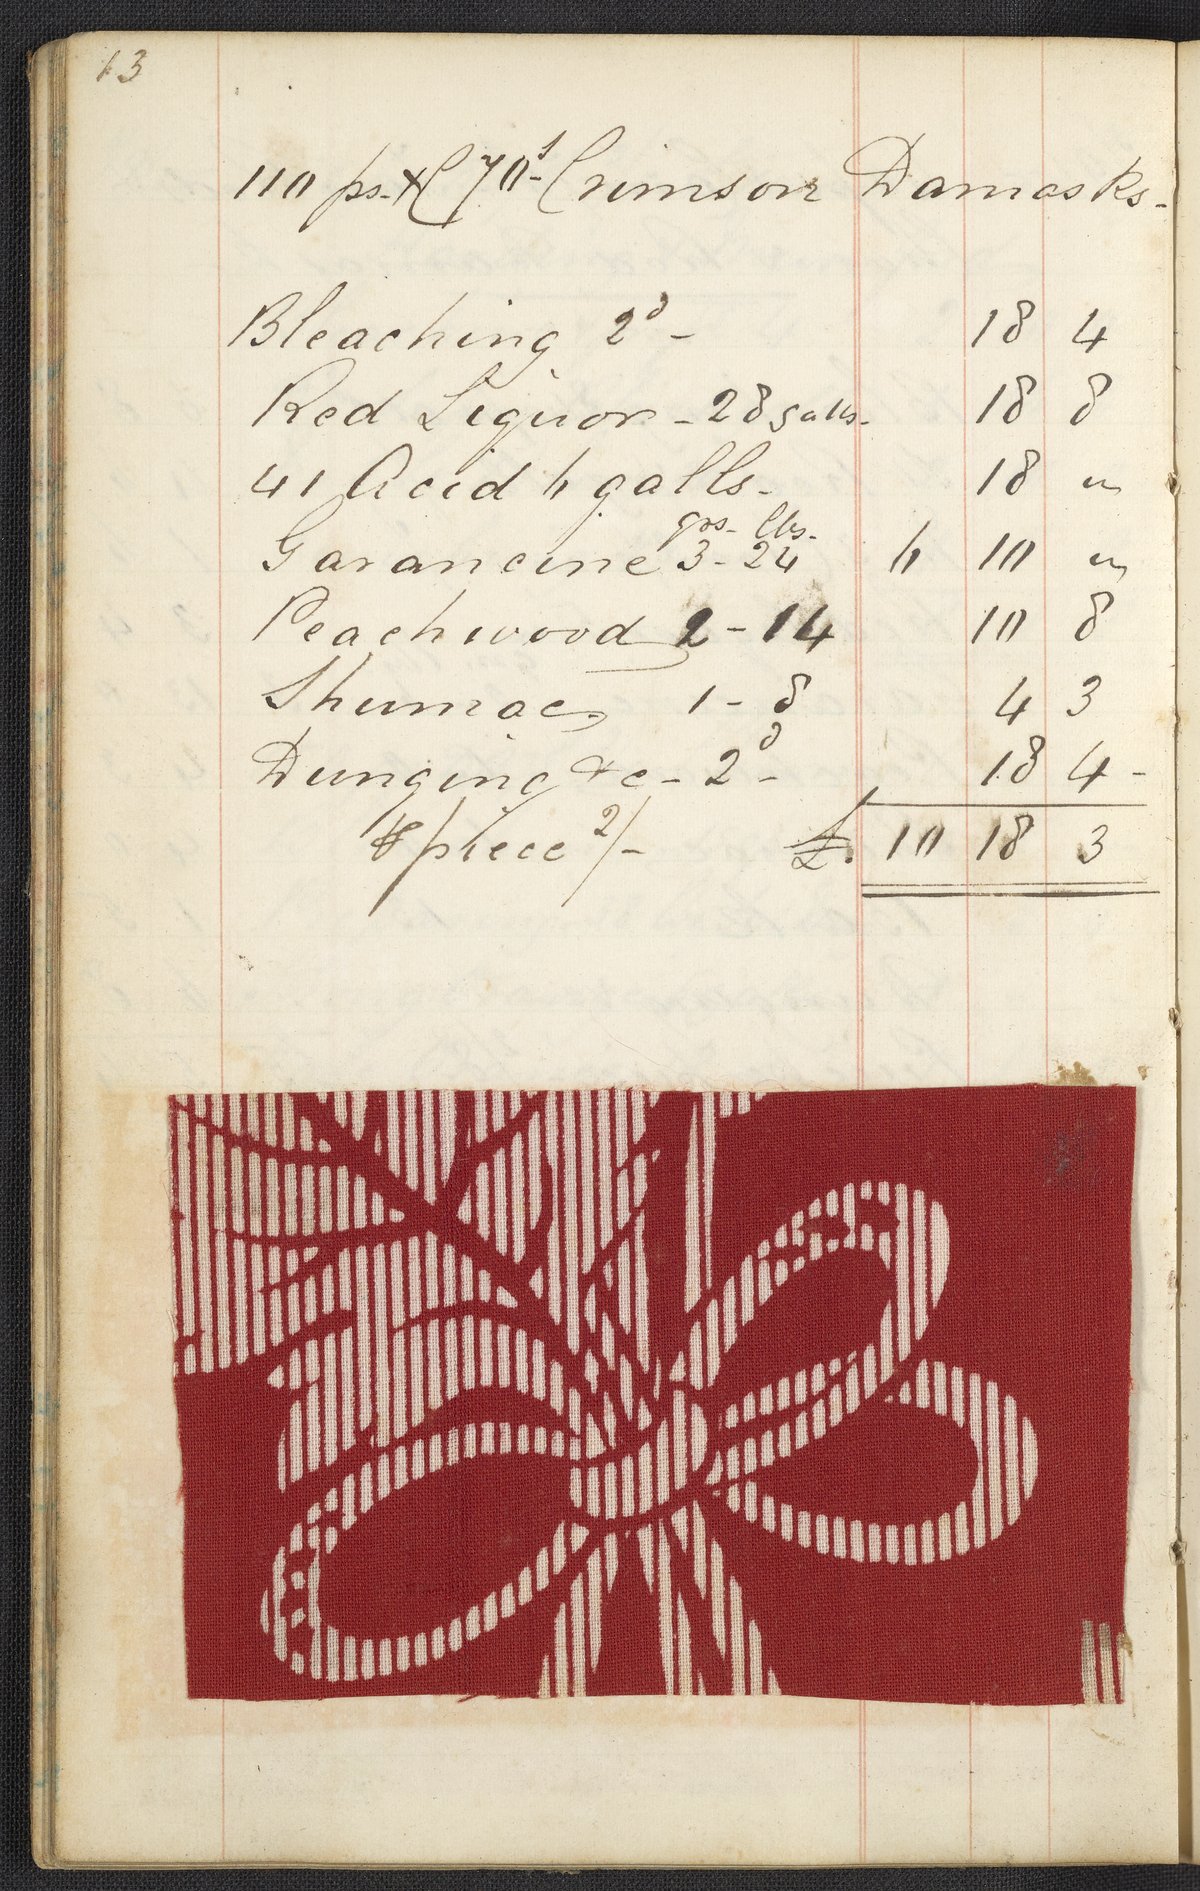 13
110 ps. XC 70s Crimson Damasks-
Bleaching 2d - 18 4
Red Liquor - 28 galls. 18 8
41 Acid 6 galls. 18 "
qrs. lbs.
Garancine 3 - 24 6 10 "
Peachwood 2 - 14 10 8
Shumac 1 - 8 4 3
Dunging &c - 2d - 18 4 -
℔ piece 2/- £. 10 18 3